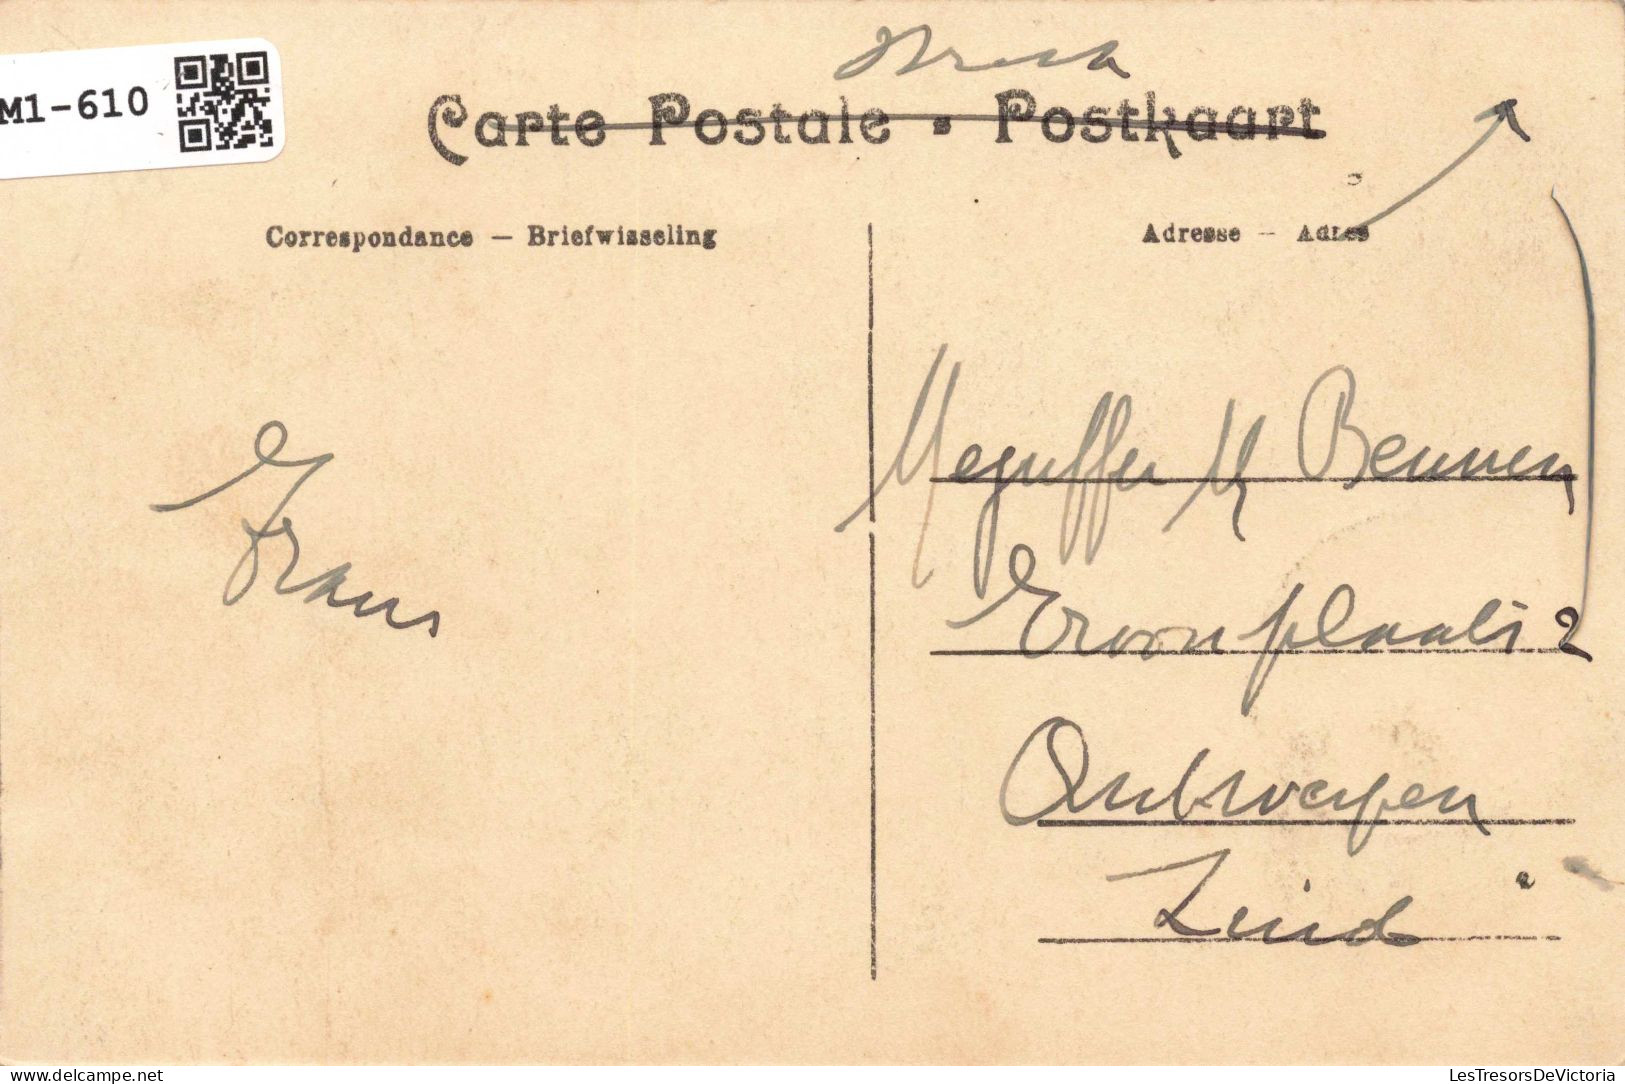 M1-610
Druk
Carte Postale • Postkaart
Correspondance — Briefwisseling
Adresse — Adres
Frans
Mejuffer M Bennen
Troonplaats 2
Antwerpen
Zuid
LesTresorsDeVictoria